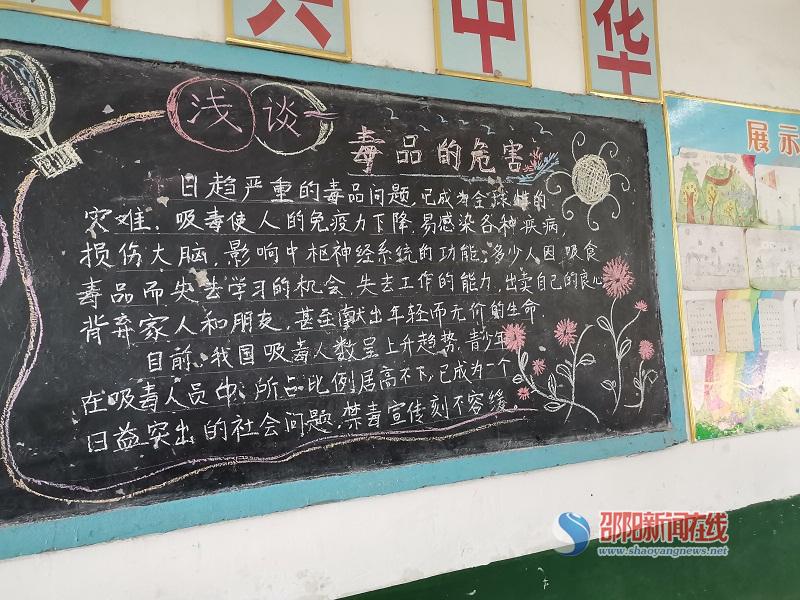 兴中华
浅谈
毒品的危害
日趋严重的毒品问题,已成为全球性的
灾难,吸毒使人的免疫力下降,易感染各种疾病,
损伤大脑,影响中枢神经系统的功能,多少人因吸食
毒品而失去学习的机会,失去工作的能力,出卖自己的良心
背弃家人和朋友,甚至献出年轻而无价的生命
目前,我国吸毒人数呈上升趋势,青少年
在吸毒人员中,所占比例居高不下,已成为一个
日益突出的社会问题,禁毒宣传刻不容缓。
展示
邵阳新闻在线
www.shaoyangnews.net